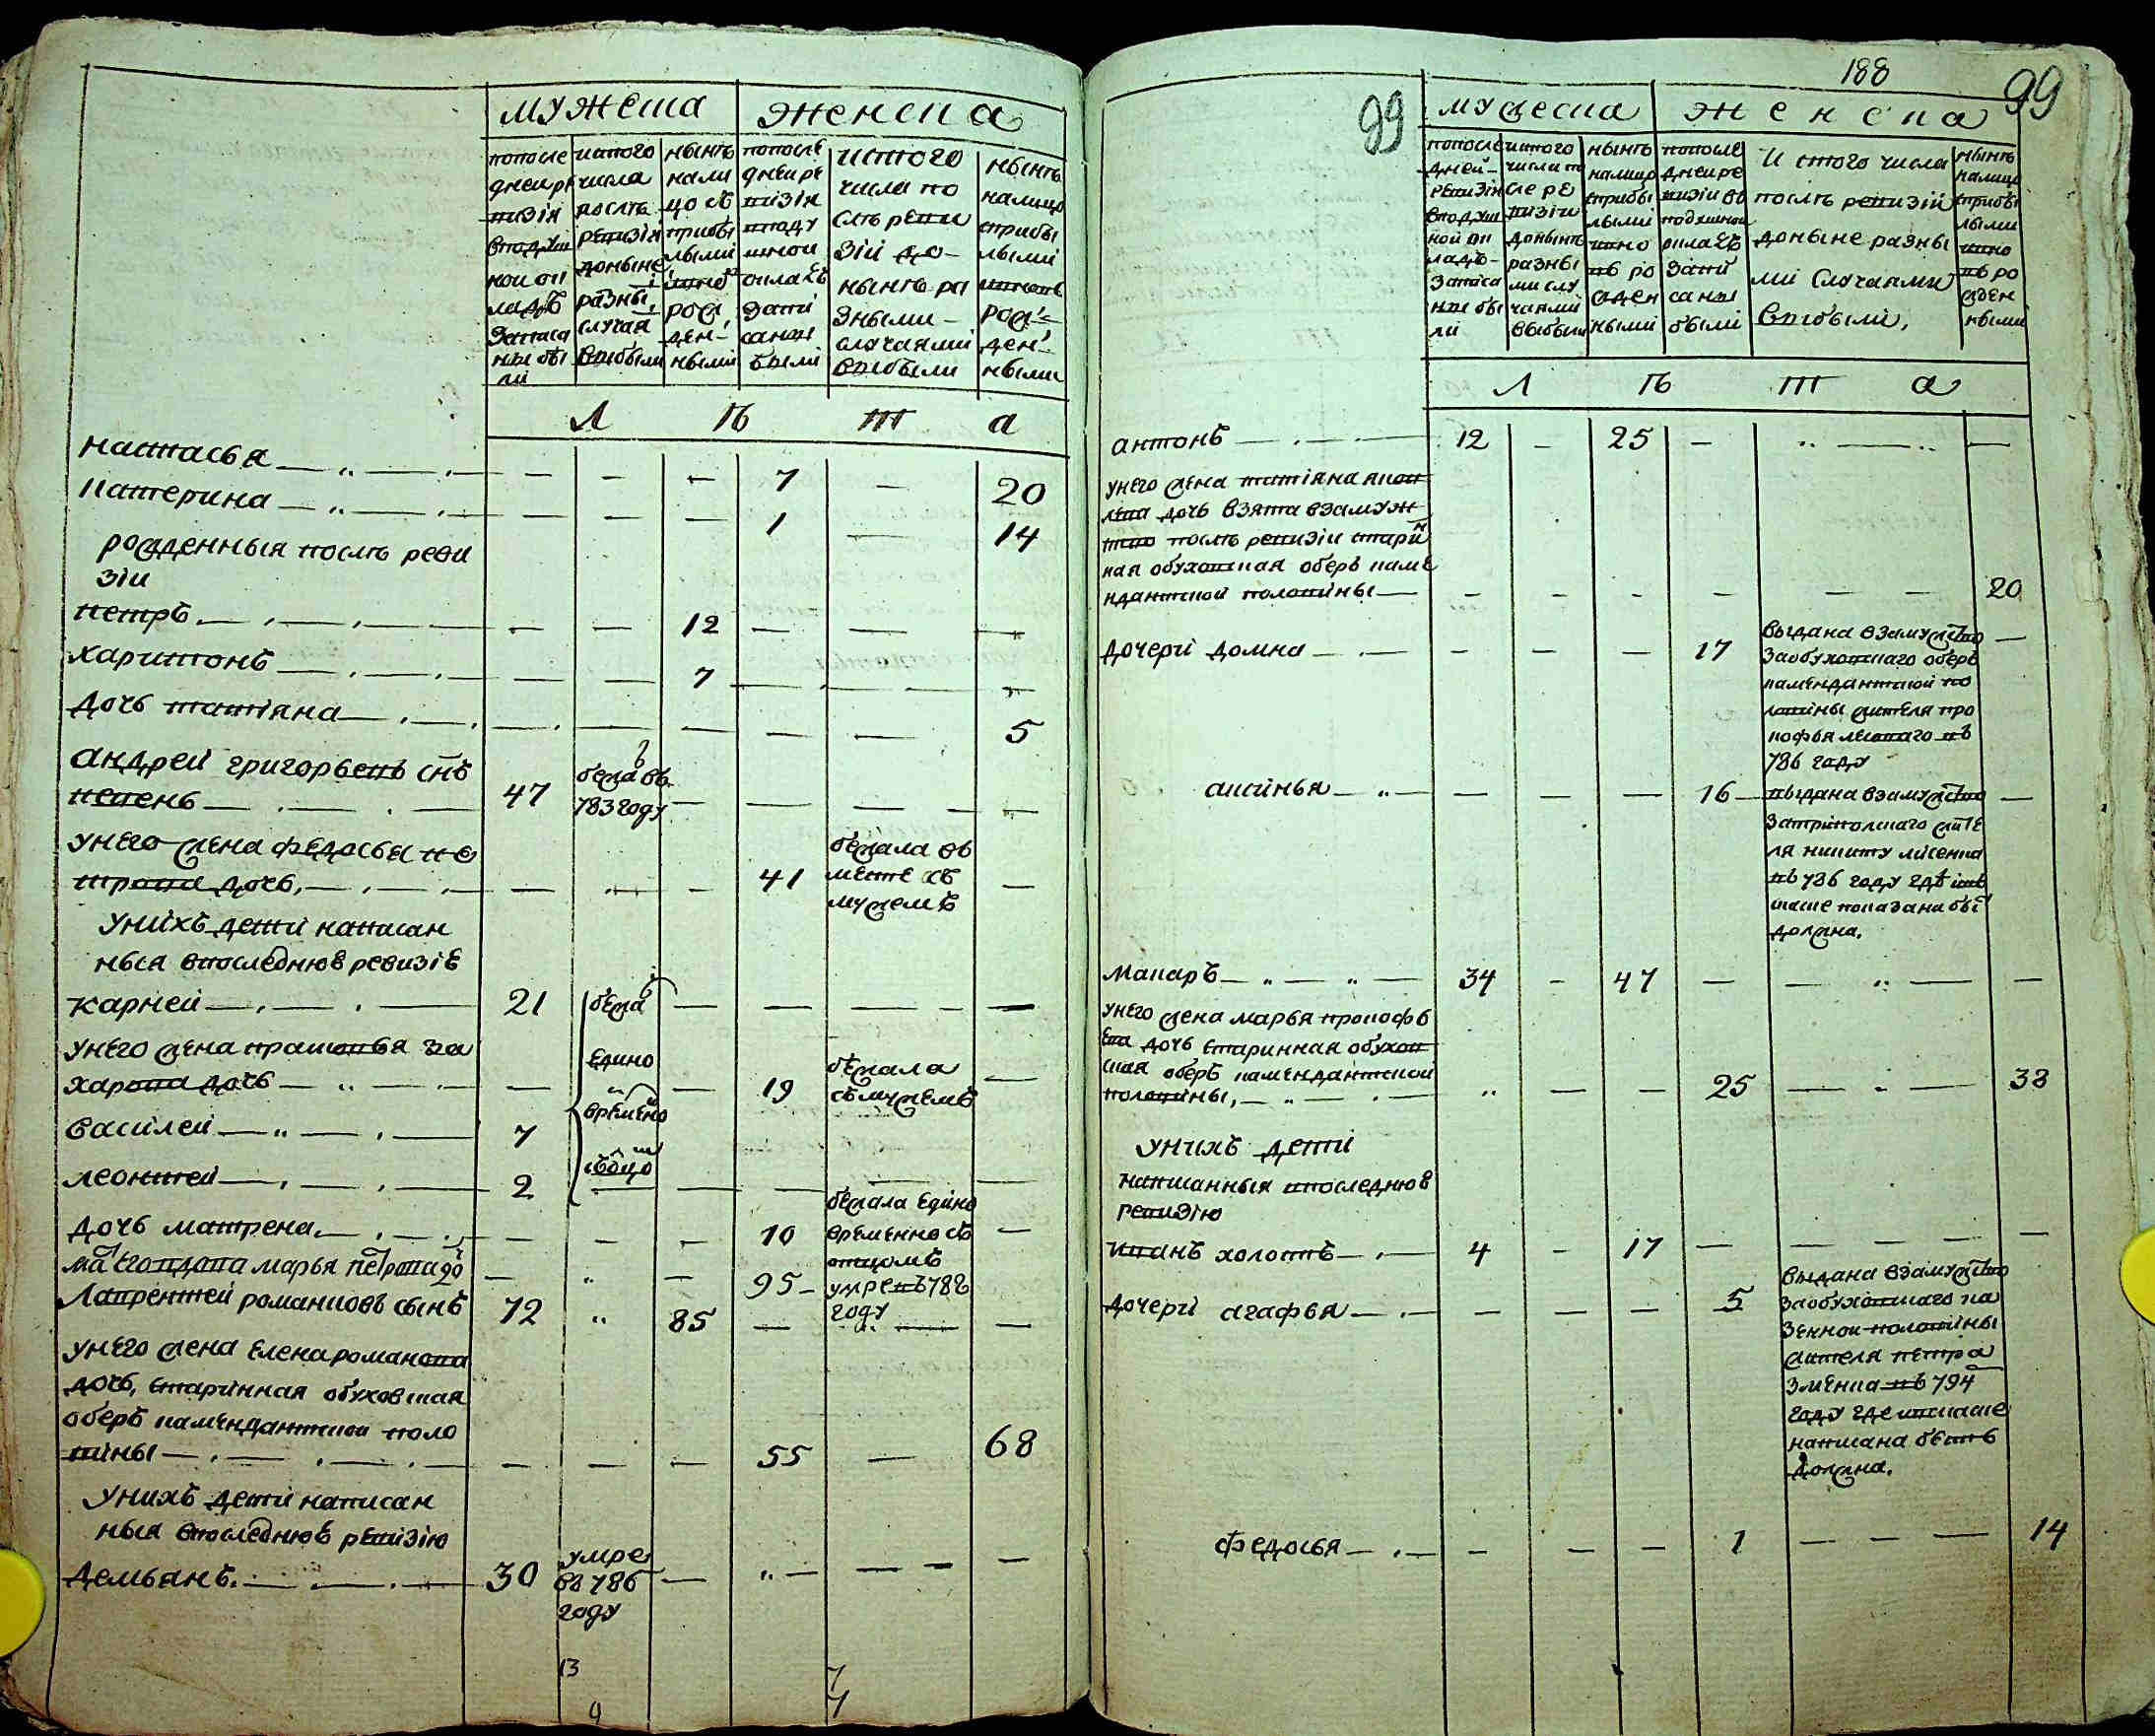 мужеска женска
попосле
дней ре
визіи
вподуш
ной ок
ладѣ
записа
ны бы
ли
истого
числа
послѣ
ревизіи
доныне
разны
случая
выбыли
нынѣ
нали
цо съ
прибы
лыми
рож
ден
ными
попосле
дней ре
визіи
вподу
шной
окладъ
запи
саны
были
истого
числа по
слѣ реви
зіи до
нынѣ ра
зными
случаями
выбыли
нынѣ
налицо
сприбы
лыми
рож
ден
ными
Л Ѣ т а
настасья 7 20
катерина 1 14
рожденныя послѣ реви
зіи
петръ 12
харитонъ 7
дочь татіяна 5
андрей григорьевъ снъ
певень 47 бежа въ
783 году
унего жена федосья пе
трова дочь 41 бежала въ
месте съ
мужемъ
унихъ дети написан
ныя впоследнюю ревизіе
карней 21 бежа
унего жена прасковья за
харова дочь 19 бежала
съ мужемъ
едино
времено
собцо
василей 7
леонтей 2
дочь матрена 10 бежала едино
временно съ
отцомъ
мать егондова марья петрова до 95 умре въ 788
году
Лаврентей романцовъ сынъ 72 85
унего жена елена романова
дочь, старинная обуховская
оберъ камендантской поло
вины 55 68
унихъ дети написан
ныя впоследнюю ревизію
демьянъ 30 умре
въ 786
году
13
9
7
7
188
99
99
мужеска женска
попосле
дней
ревизіи
вподуш
ной ок
ладъ
записа
ны бы
ли
истого
числа по
сле ре
визіи
донынѣ
разны
ми слу
чаями
выбыли
нынѣ
налицо
сприбы
лыми
рожден
ными
попосле
дней ре
визіи въ
подушной
окладъ
запи
саны
были
Истого числа
послѣ ревизій
доныне разны
ми случаями
выбыли,
нынѣ
налицо
сприбы
лыми
рожден
ными
Л Ѣ т а
антонъ 12 25
унего жена татіяна яков
лева дочь взята взамуж
тво послѣ ревизіи старин
ная обуховская оберъ каме
ндантской половины 20
дочери домна 17 выдана взамужство
заобуховскаго оберъ
камендантской по
ловины жителя про
кофья лесоваго въ
786 году
аксинья 16 выдана взамужство
затрипольскаго жите
ля никиту лисенка
въ 786 году где
показана быт
должна.
макаръ 34 47
унего жена марья прокофь
ева дочь старинная обухов
ская оберъ камендантской
половины, 25 38
унихъ дети
написанныя впоследнюю
ревизію
иванъ холостъ 4 17
дочери агафья 5 выдана взамужство
заобуховскаго ка
зенной половины
жителя петра
змѣнка въ 794
году где
написана бѣть
должна.
федосья 1 14